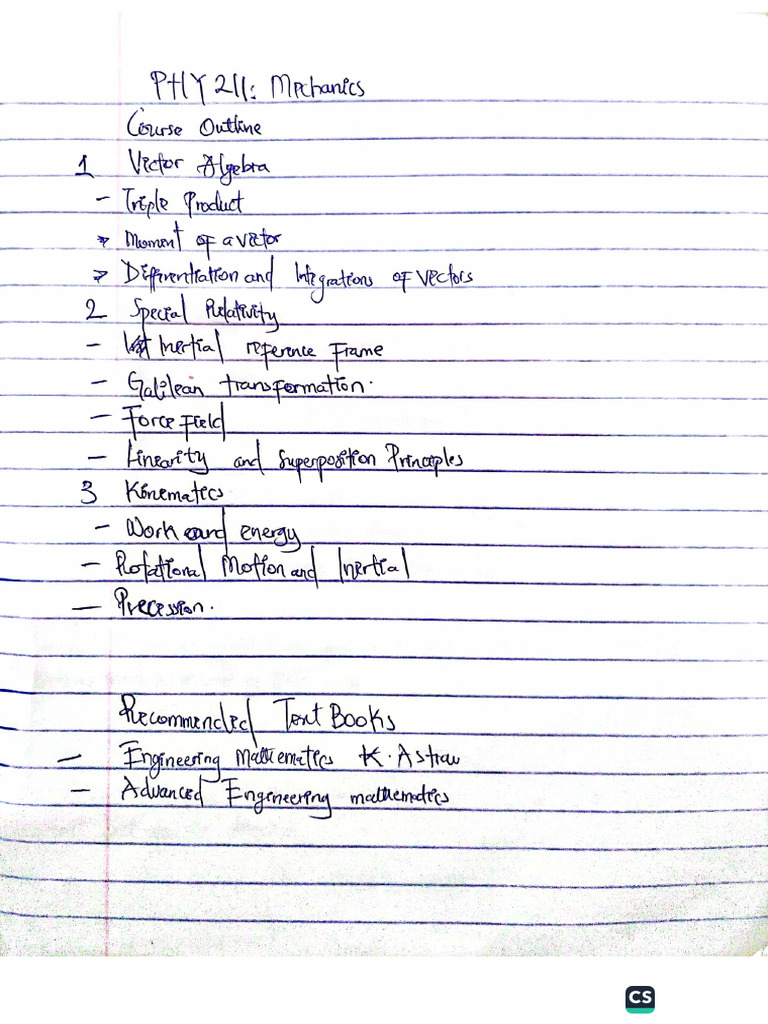 PHY 211: Mechanics
Course Outline
1 Vector Algebra
- Triple Product
> Moment of a vector
> Differentiation and Integrations of vectors
2 Special Relativity
- Inertial reference Frame
- Galilean transformation.
- Force Field
- Linearity and Superposition Principles
3 Kinematics
- Work and energy
- Rotational Motion and Inertial
- Precession.
Recommended Text Books
- Engineering Mathematics K. A
- Advanced Engineering mathematics
CS